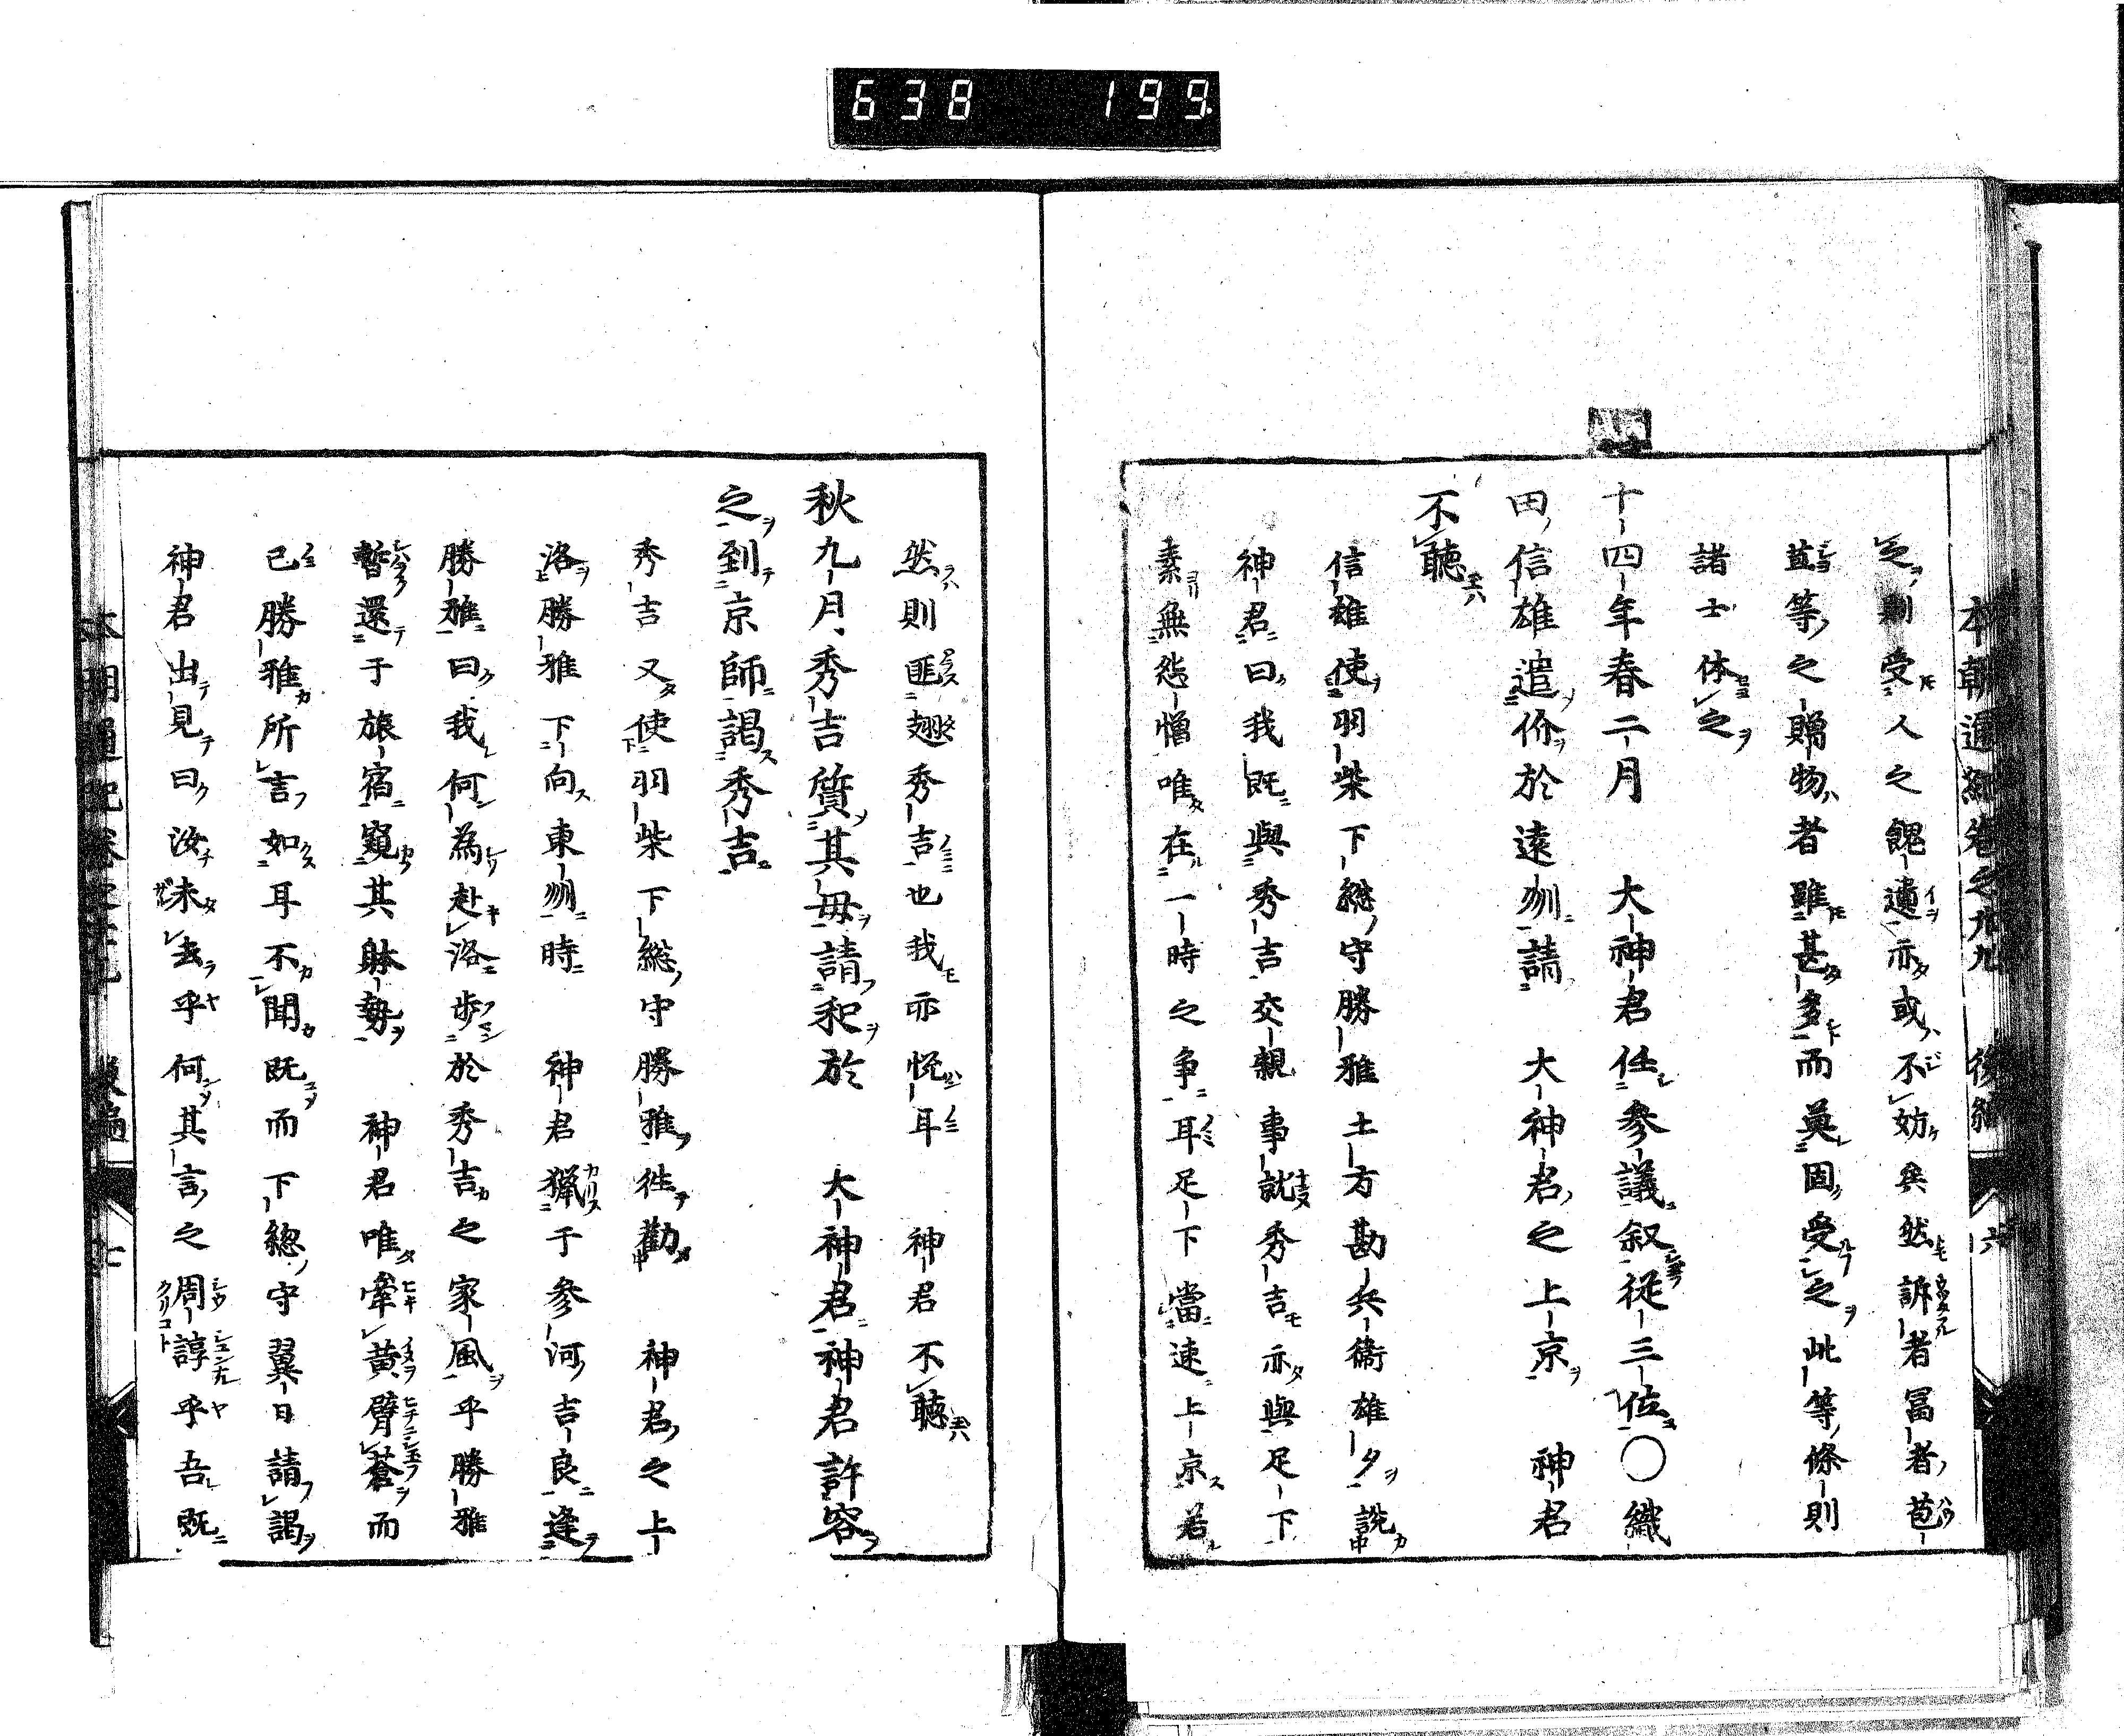 638 199
本朝通紀卷之九九 後編 六
之則受人之餽遺亦或不妨矣然訴者冨者苞
苴等之贈物者雖甚多而莫固受之此等條則
諸士体之
十四年春二月 大神君任參議叙従三位〇織
田信雄遣价於遠州請 大神君之上京 神君
不聴
信雄使羽柴下総守勝雅土方勘兵衛雄夕説
神君曰我既與秀吉交親事就秀吉亦與足下
素無怨憎唯在一時之争耳足下當速上京若
然則匪翅秀吉也我亦悦耳 神君不聴
秋九月秀吉質其母請和於 大神君神君許容
之到京師謁秀吉
秀吉又使羽柴下総守勝雅徃勸 神君之上
洛勝雅下向東州時 神君獵于參河吉良逢
勝雅曰我何為赴洛歩於秀吉之家風乎勝雅
暫還于旅宿窺其躰勢 神君唯牽黄臂蒼而
已勝雅所言如耳不聞既而下總守翼日請謁
神君出見曰汝未去乎何其言之周諄乎吾既